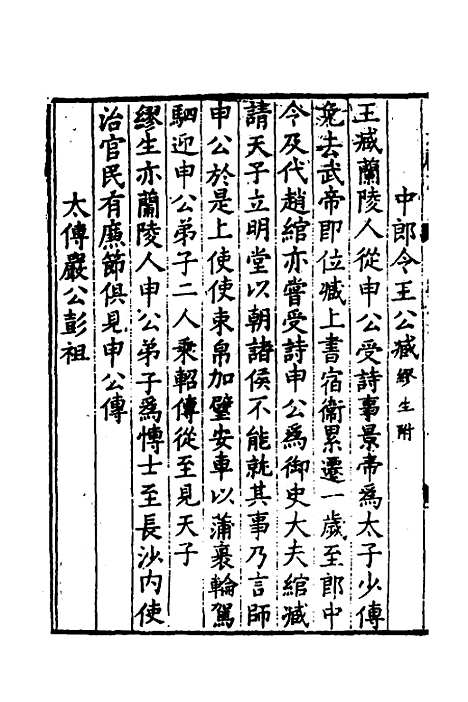 中郎令王公臧繆生附
王臧蘭陵人從申公受詩事景帝爲太子少傅
免去武帝即位臧上書宿衛累遷一歲至郎中
令及代趙綰亦嘗受詩申公爲御史大夫綰臧
請天子立明堂以朝諸侯不能就其事乃言師
申公於是上使使束帛加璧安車以蒲裹輪駕
駟迎申公弟子二人乘軺傳從至見天子
繆生亦蘭陵人申公弟子爲博士至長沙内使
治官民有廉節俱見申公傳
太傅嚴公彭祖